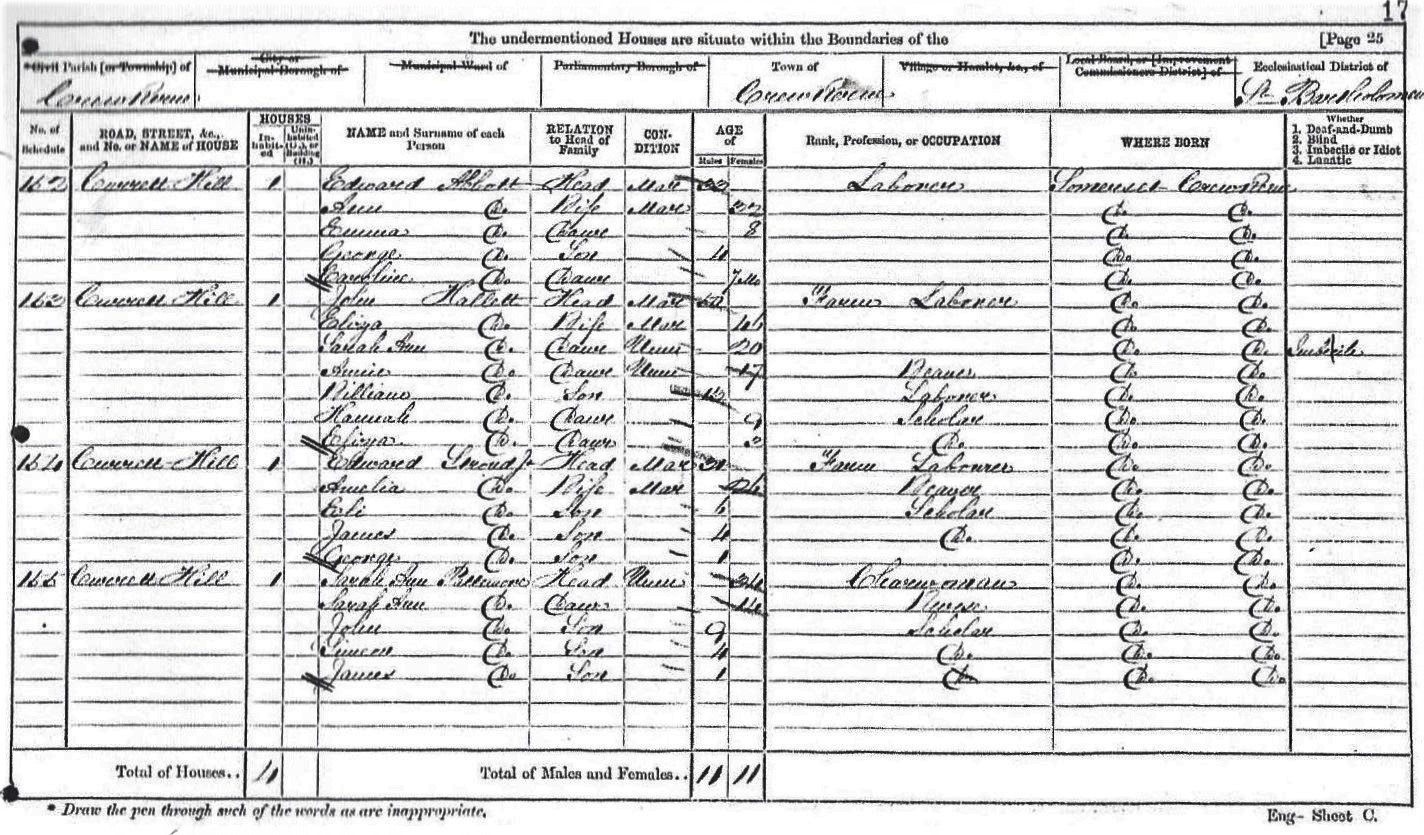 17
The undermentioned Houses are situate within the Boundaries of the [Page 25
*Civil Parish [or Township] of City or Municipal Borough of Municipal Ward of Parliamentary Borough of Town of Village or Hamlet, &c., of Local Board, or [Improvement Commissioners District] of Ecclesiastical District of
Crewkerne Crewkerne St Bartholomew
No. of Schedule ROAD, STREET, &c., and No. or NAME of HOUSE HOUSES Inhabited Uninhabited (U.), or Building (B.) NAME and Surname of each Person RELATION to Head of Family CONDITION AGE of Males Females Rank, Profession, or OCCUPATION WHERE BORN Whether 1. Deaf-and-Dumb 2. Blind 3. Imbecile or Idiot 4. Lunatic
152 Hill 1 Edward Abbott Head Mar 32 Laborer Somerset Crewkerne
Ann Do. Wife Mar Do. Do.
Emma Do. Daur 8 Do. Do.
George Do. Son 4 Do. Do.
Caroline Do. Daur 7 Mo Do. Do.
153 Hill 1 John Hallett Head Mar 50 Farm Laborer Do. Do.
Eliza Do. Wife Mar 46 Do. Do.
Sarah Ann Do. Daur Unm 20 Do. Do. Imbecile
Do. Daur Unm 17 Weaver Do. Do.
William Do. Son Laborer Do. Do.
Hannah Do. Daur 9 Scholar Do. Do.
Eliza Do. Daur 3 Do. Do. Do.
154 Hill 1 Edward Stroud Jr Head Mar Farm Labourer Do. Do.
Amelia Do. Wife Mar 26 Weaver Do. Do.
Eli Do. Son 6 Scholar Do. Do.
James Do. Son 4 Do. Do. Do.
George Do. Son 1 Do. Do.
155 Hill 1 Sarah Ann Pattemore Head Unm 34 Charwoman Do. Do.
Sarah Ann Do. Daur 14 Nurse Do. Do.
John Do. Son 9 Scholar Do. Do.
Simeon Do. Son 4 Do. Do. Do.
James Do. Son 1 Do. Do. Do.
Total of Houses.. 4 Total of Males and Females.. 11 11
* Draw the pen through such of the words as are inappropriate.
Eng- Sheet C.